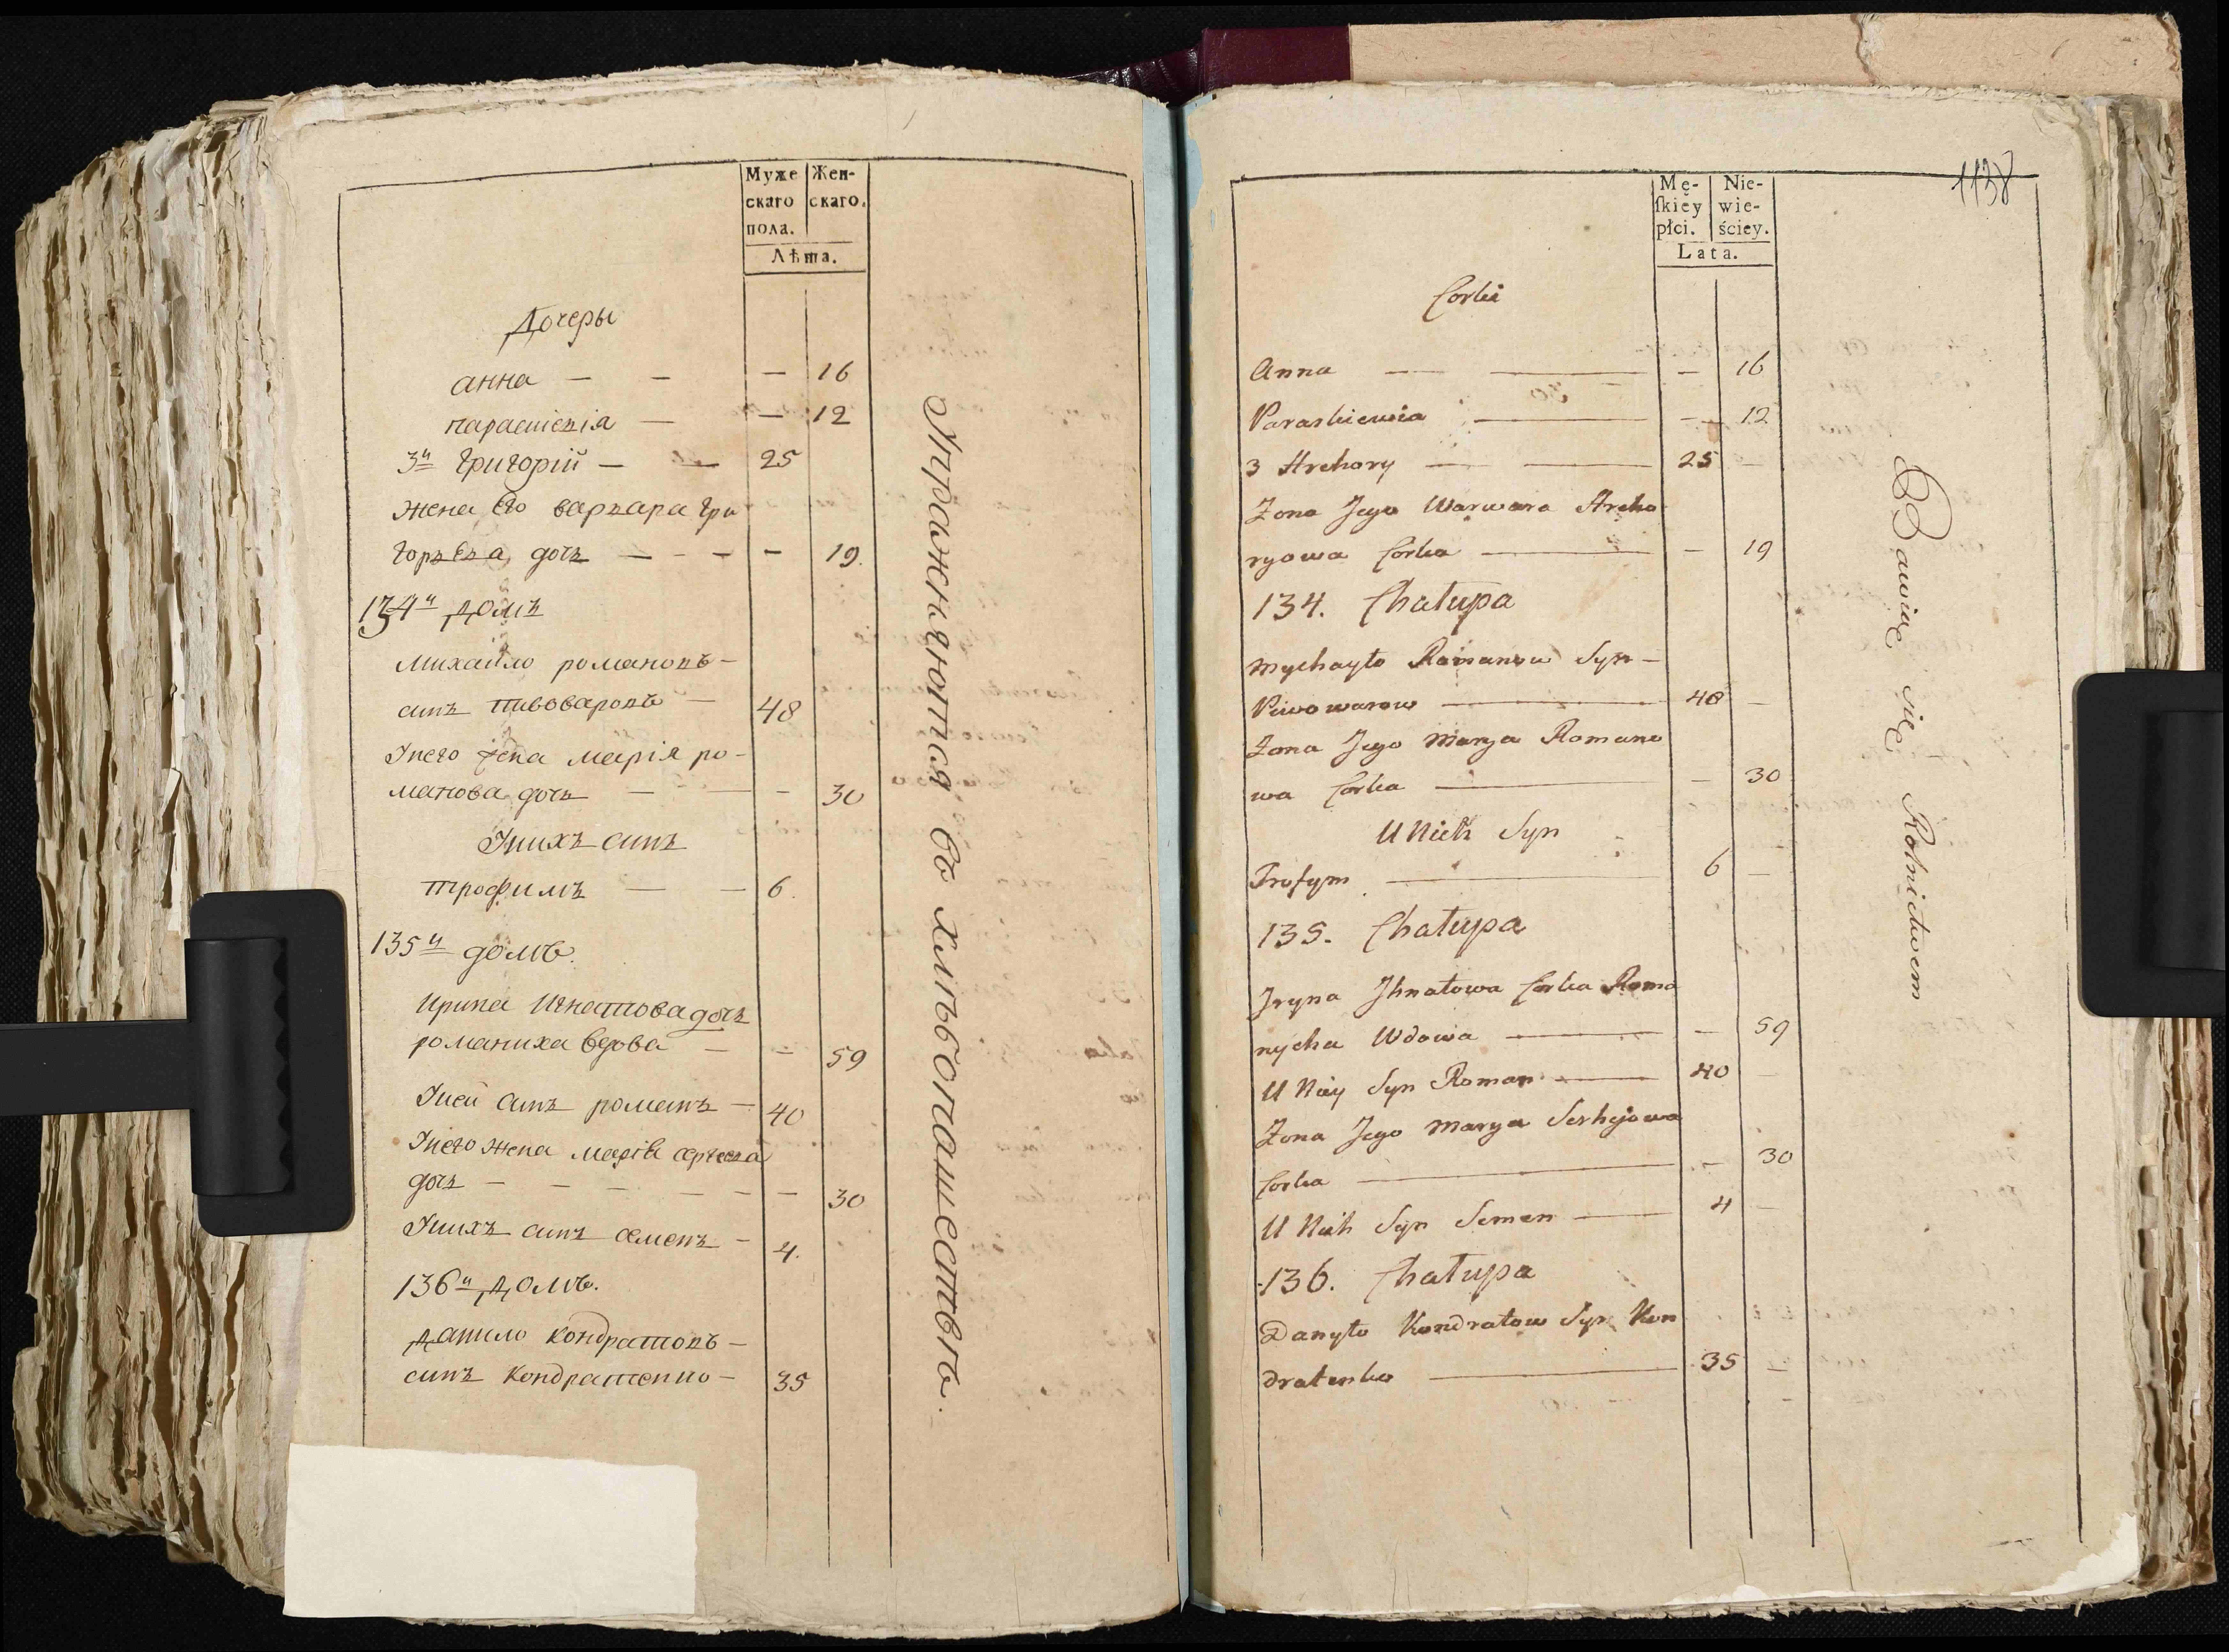 Муже
скаго
пола.
Жен-
скаго.
Лѣта.
Дочеры
анна — — — 16
параскевія — — 12
3й Григорій — — 25
жена Его варвара Гри
горьева дочь — — — — 19.
134й домъ
Михайло романовъ —
синъ пивоваровъ — 48
Унего жена марія ро-
манова дочь — — — 30
Унихъ синъ
трофимъ — — 6.
135й домъ.
Ирина Игнатова дочь
романиха вдова — — 59
Уней синъ романъ — 40
Унего жена марія сергеева
дочь — — — — — — 30
Унихъ синъ семенъ — 4.
136й домъ.
данило кондратовъ —
синъ кондратенко — 35
Упражняются въ хлѣбопашествѣ.
1138
Mę-
ſkiey
płci.
Nie-
wie-
ściey.
Lata.
Corki
Anna — — — 16
Paraskiewia — — 12
3 Hrehory — — 25 —
Zona Jego Warwara Hreho
ryowa Corka — — 19
134. Chałupa
Mychayło Romanow Syn —
Piwowarow — 48 —
Zona Jego Marya Romano
wa Corka — — 30
U Nich Syn
Trofym — 6 —
135. Chałupa
Jryna Jhnatowa Corka Roma
nycha Wdowa — — 59
U Niey Syn Roman — 40 —
Zona Jego Marya Serhejowa
Corka — — 30
U Nich Syn Semen — 4 —
136. Chałupa
Danyło Kondratow Syn Kon
dratenko — 35 —
Bawią się Rolnictwem